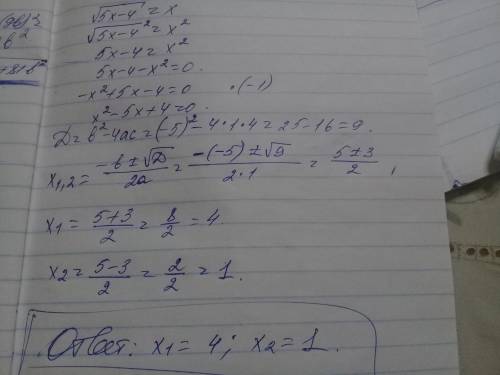 √5x-4 = x
√5x-4² = x²
5x-4 = x²
5x-4-x²=0.
-x²+5x-4=0 ·(-1)
x²-5x+4=0.
D = b²-4ac = (-5)²-4·1·4 = 25-16 = 9.
x₁,₂ = (-b ± √D)/2a = (-(-5) ± √9)/(2·1) = (5±3)/2,
x₁ = (5+3)/2 = 8/2 = 4.
x₂ = (5-3)/2 = 2/2 = 1.
Ответ: x₁ = 4; x₂ = 1.